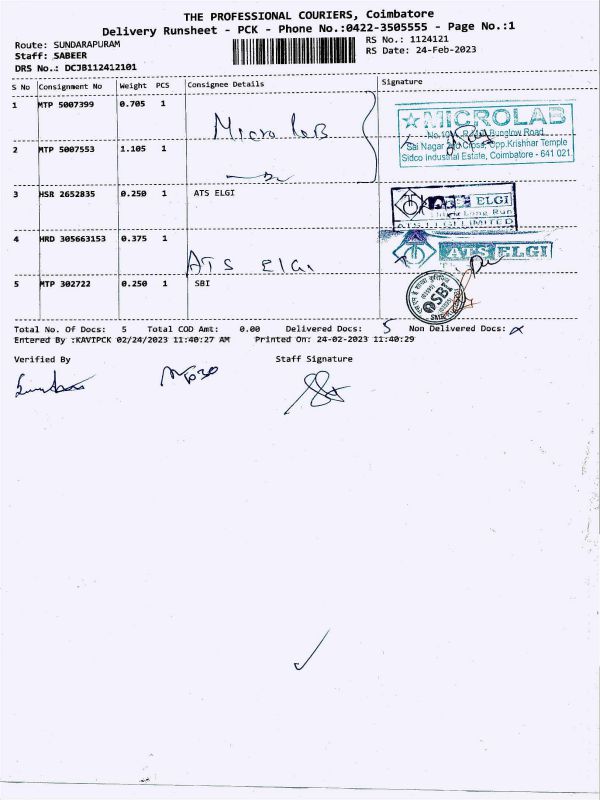 THE PROFESSIONAL COURIERS, Coimbatore
Delivery Runsheet - PCK - Phone No.:0422-3505555 - Page No.:1
Route: SUNDARAPURAM
RS No.: 1124121
Staff: SABEER
RS Date: 24-Feb-2023
DRS No.: DCJB112412101
S No Consignment No Weight PCS Consignee Details Signature
1 MTP 5007399 0.705 1
Micro lab
MICROLAB
Bunglow Road
2 MTP 5007553 1.105 1
Sai Nagar 2nd Cross, Opp.Krishnar Temple
Sidco Industrial Estate, Coimbatore - 641 021
3 HSR 2652835 0.250 1 ATS ELGI
ELGI
ATS ELGI LIMITED
4 HRD 305663153 0.375 1
ATS Elgi
ATS ELGI
5 MTP 302722 0.250 1 SBI
SBI
Total No. Of Docs: 5 Total COD Amt: 0.00 Delivered Docs: 5 Non Delivered Docs:
Entered By :KAVIPCK 02/24/2023 11:40:27 AM Printed On: 24-02-2023 11:40:29
Verified By Staff Signature